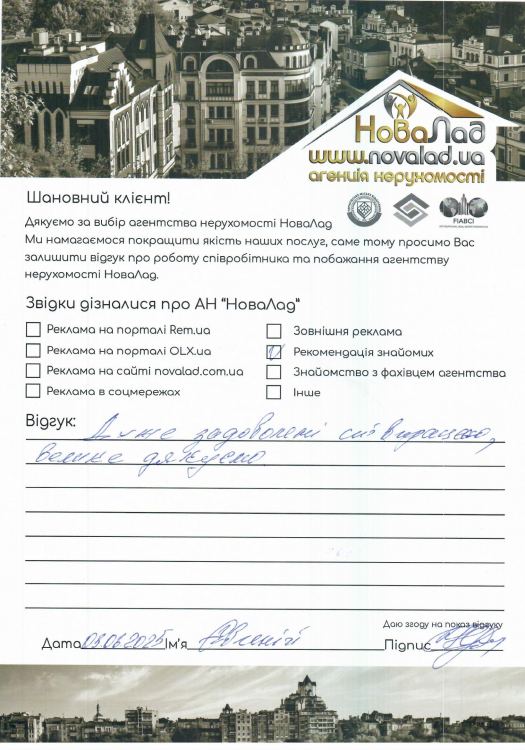 НоваЛад
www.novalad.ua
агенція нерухомості
FIABCI
Шановний клієнт!
Дякуємо за вибір агентства нерухомості НоваЛад
Ми намагаємося покращити якість наших послуг, саме тому просимо Вас
залишити відгук про роботу співробітника та побажання агентству
нерухомості НоваЛад.
Звідки дізналися про АН "НоваЛад"
Реклама на порталі Rem.ua
Реклама на порталі OLX.ua
Реклама на сайті novalad.com.ua
Реклама в соцмережах
Зовнішня реклама
Рекомендація знайомих
Знайомство з фахівцем агентства
Інше
Відгук: Дуже задоволені співпрацею,
велике дякуємо
Даю згоду на показ відгуку
Дата 09.06.2025 Ім'я Євгеній Підпис